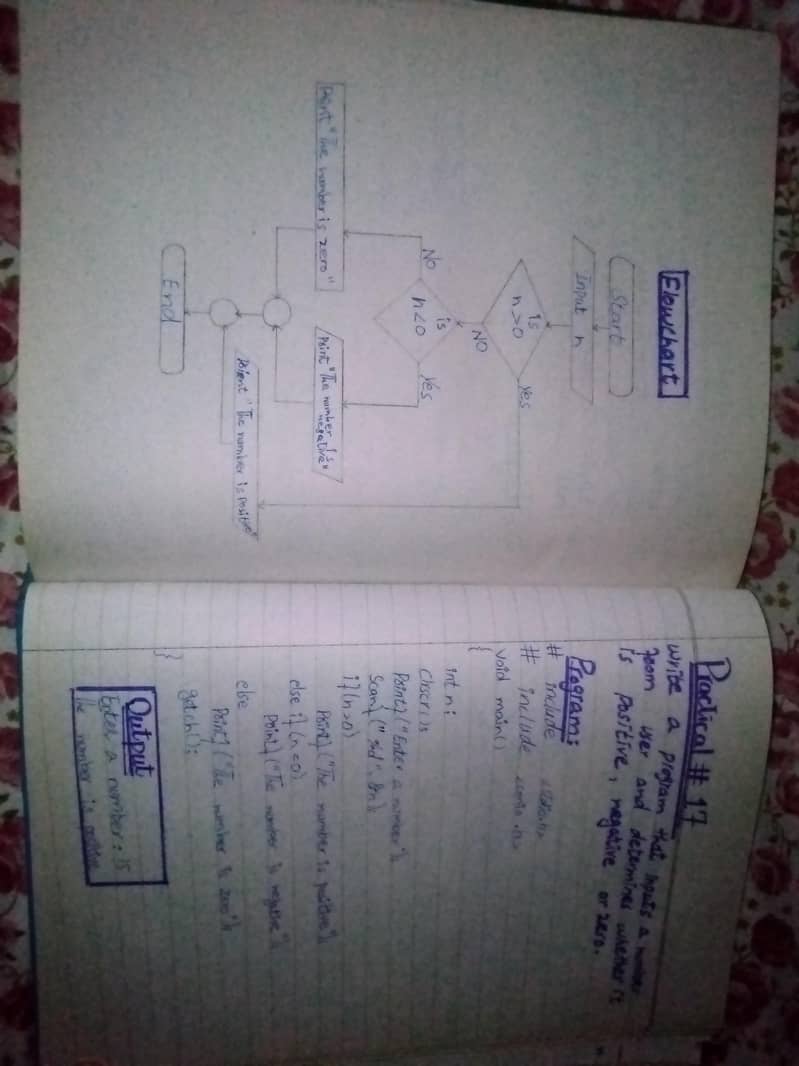 Flowchart
Start
Input n
is
n>0
Yes
NO
is
n<0
No
Yes
Print "The number is zero"
Print "The number is
negative"
Print "The number is positive"
End
Practical # 17
Write a program that inputs a number
from user and determines whether it
is positive, negative or zero.
Program:
# include <stdio.h>
# include <conio.h>
void main()
{
int n;
clrscr();
Printf("Enter a number");
Scanf("%d",&n);
if(n>0)
Printf("The number is positive");
else if(n<0)
Printf("The number is negative");
else
Printf("The number is zero");
getch();
}
Output
Enter a number: 15
The number is positive